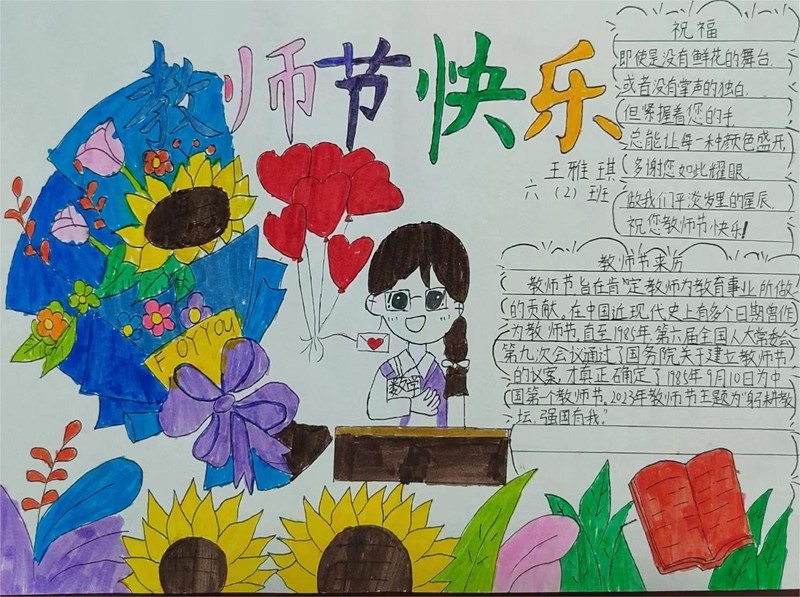 教师节快乐
王雅琪
六（2）班
祝福
即使是没有鲜花的舞台，
或者没有掌声的独白，
但紧握着您的手，
总能让每一种颜色盛开，
多谢您如此耀眼，
做我们平淡岁里的星辰，
祝您教师节快乐！
教师节来历
教师节旨在肯定教师为教育事业所做
的贡献。在中国近现代史上有多个日期曾作
为教师节，直至1985年，第六届全国人大常委会
第九次会议通过了国务院关于建立教师节
的议案，才真正确定了1985年9月10日为中
国第一个教师节。2023年教师节主题为“躬耕教
坛，强国有我。”
For You
数学